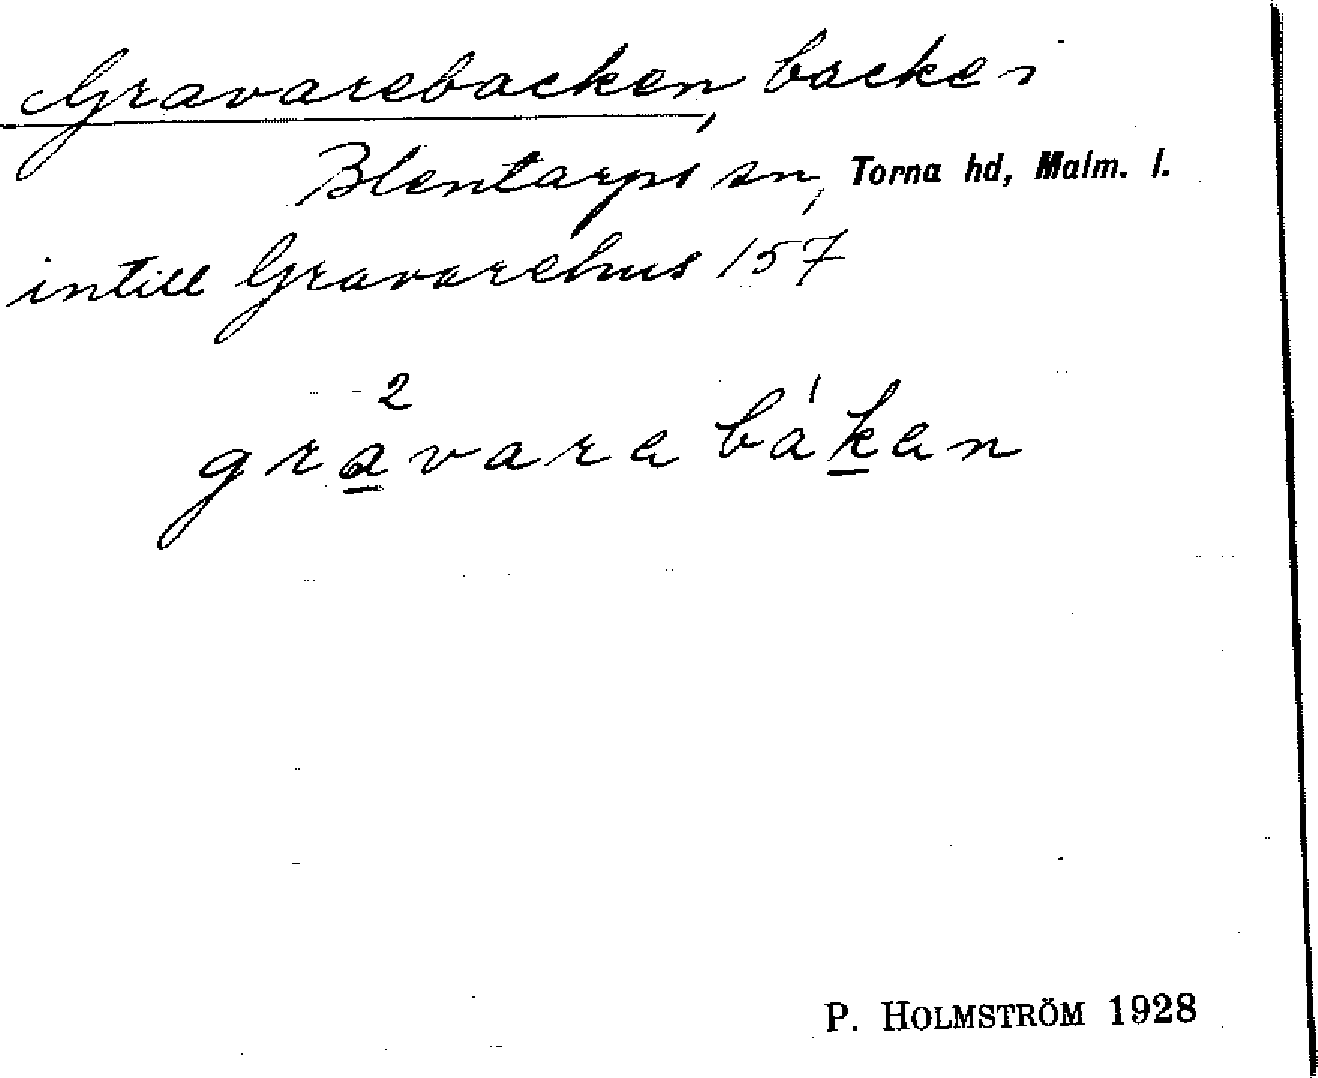 Gravarebacken, backe i
Blentarps sn, Torna hd, Malm. l.
intill Gravarehus 157
gra²vara bá'kan
P. HOLMSTRÖM 1928